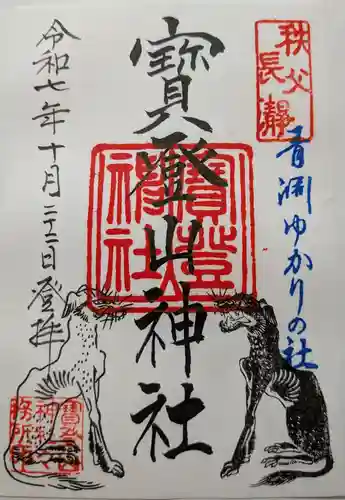 秩父
長瀞
青淵ゆかりの社
寳登山神社
寳登山
神社
令和七年十月二十二日登拝
寳登山
神社
務所